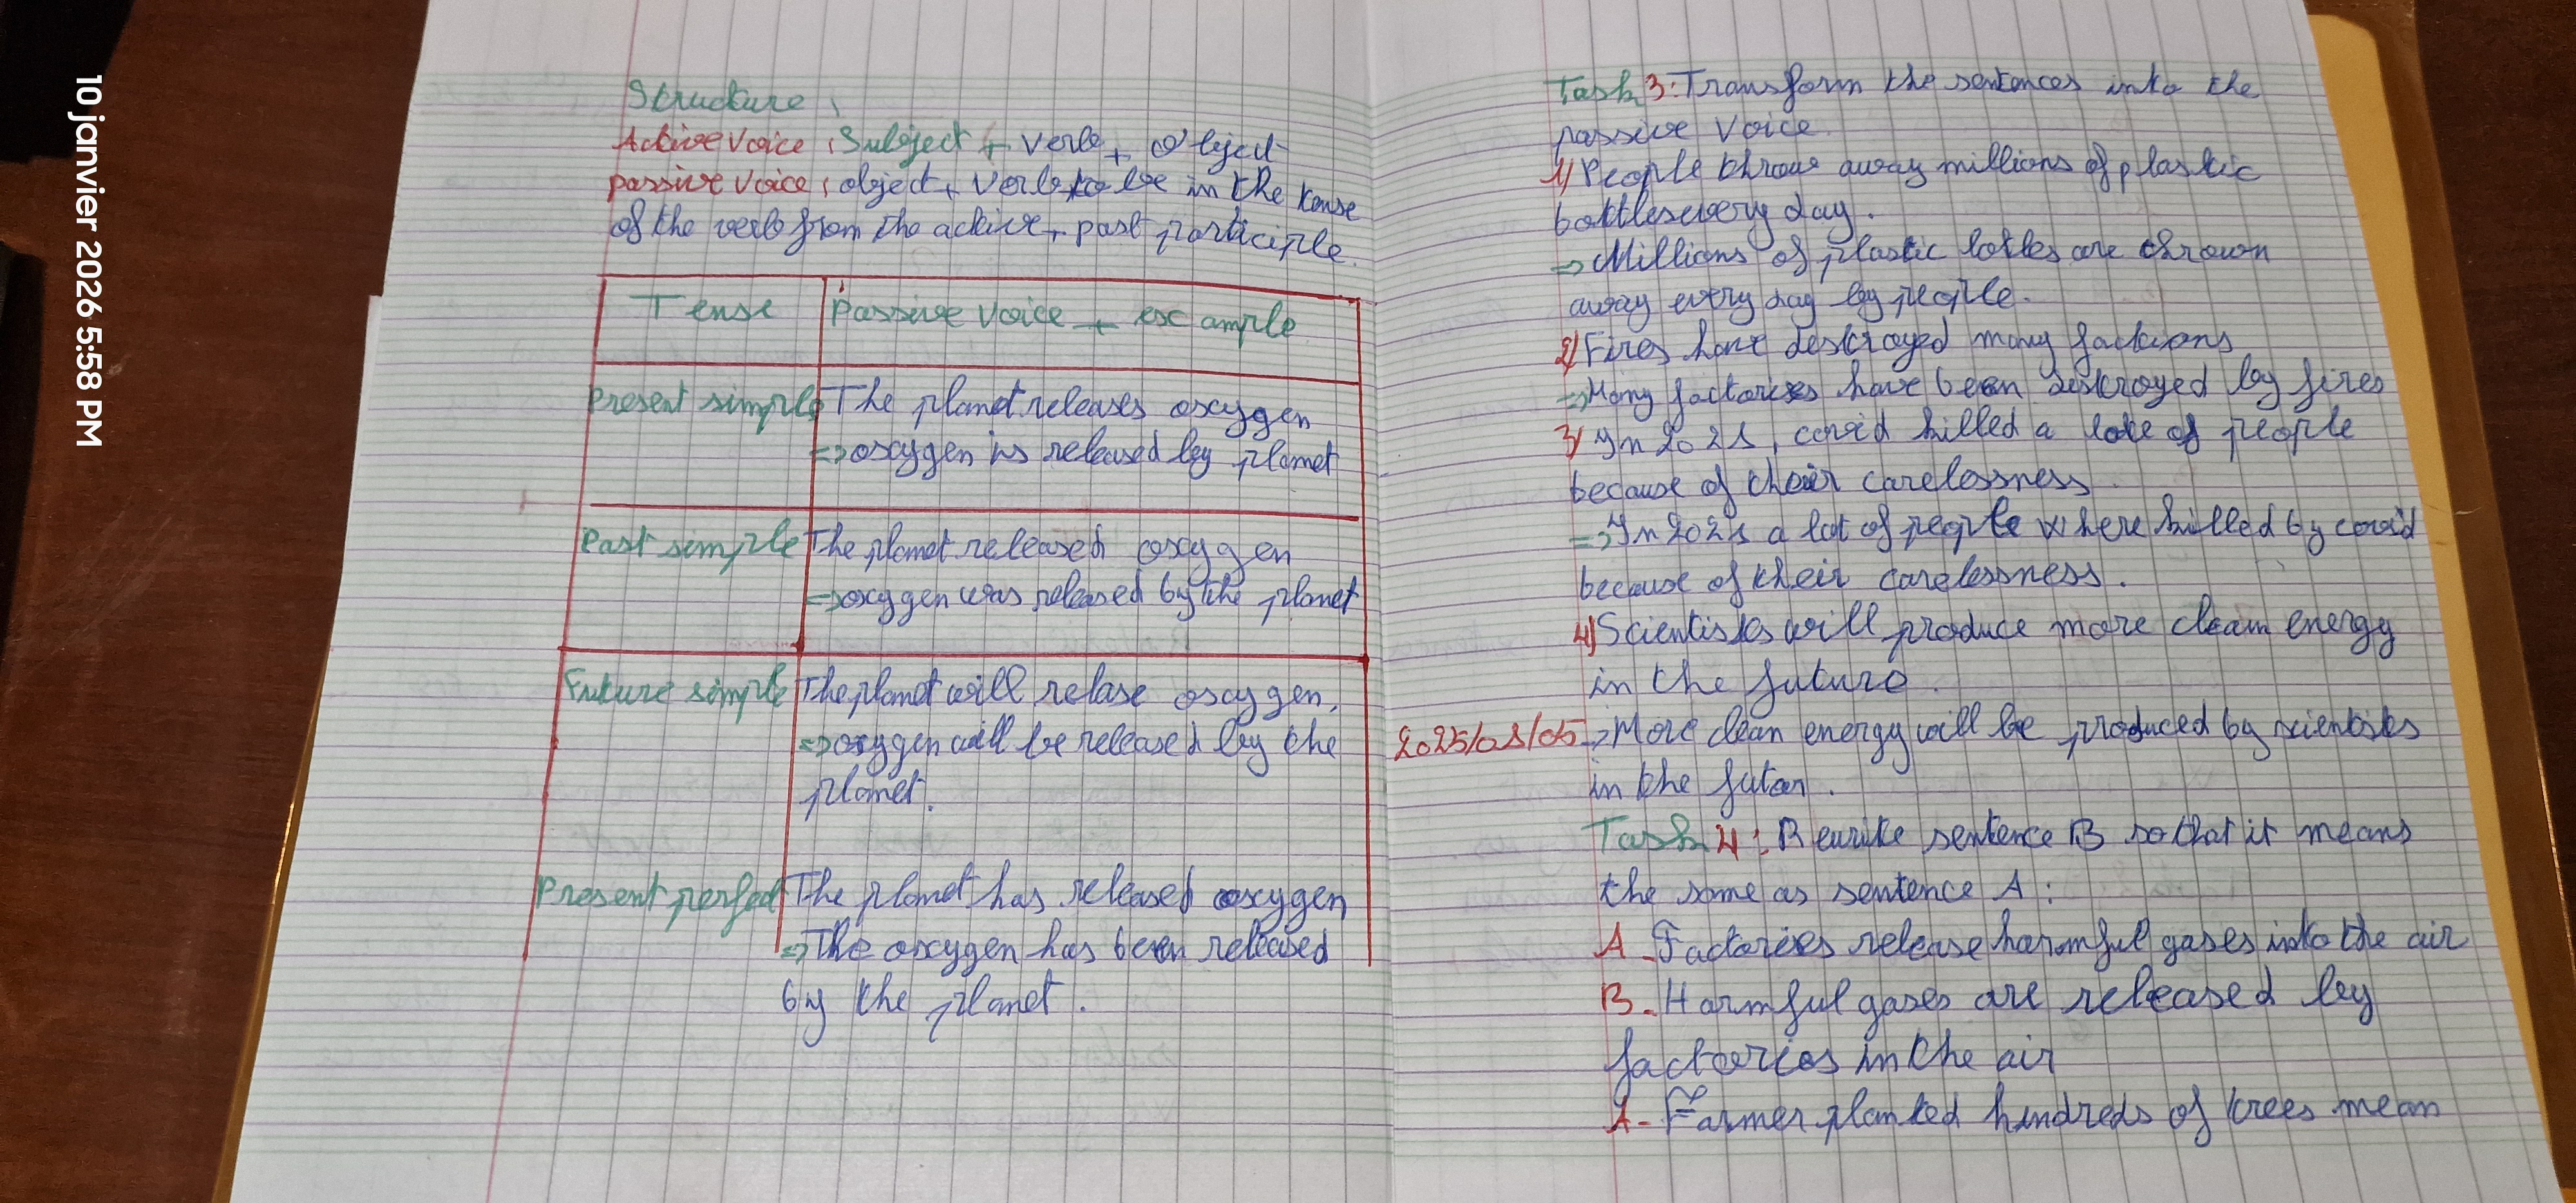 10 janvier 2026 5:58 PM
Structure :
Active Voice : Subject + Verb + object
passive voice : object + Verb to be in the tense
of the verb from the active + past participle.
Tense
Passive Voice + example
Present simple
The planet releases oxygen
=> oxygen is released by planet
Past simple
The planet released oxygen
=> oxygen was released by the planet
Future simple
The planet will relase oxygen.
=> oxygen will be released by the
planet.
Present perfect
The planet has released oxygen
=> The oxygen has been released
by the planet.
Task 3: Transform the sentences into the
passive voice.
1) People throw away millions of plastic
bottles every day.
=> Millions of plastic bottles are thrown
away every day by people.
2) Fires have destroyed many
=> Many factories have been destroyed by fires
3) In 2021, covid killed a lote of people
because of their carelessness.
=> In 2021 a lot of people where killed by covid
because of their carelessness.
4) Scientists will produce more clean energy
in the future.
2025/01/05
=> More clean energy will be produced by scientists
in the futur.
Task 4: Rewrite sentence B so that it means
the same as sentence A:
A - Factories release harmful gases into the air
B - Harmful gases are released by
factories in the air
A - Farmer planted hundreds of trees mean